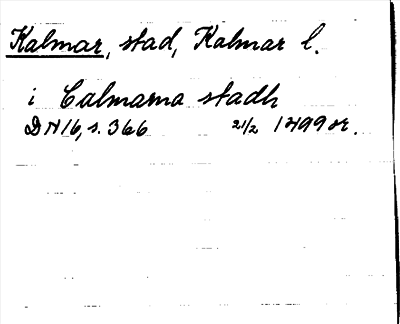 Kalmar, stad, Kalmar l.
i Calmarna stadh
DN 16, s. 366 21/2 1499 or.